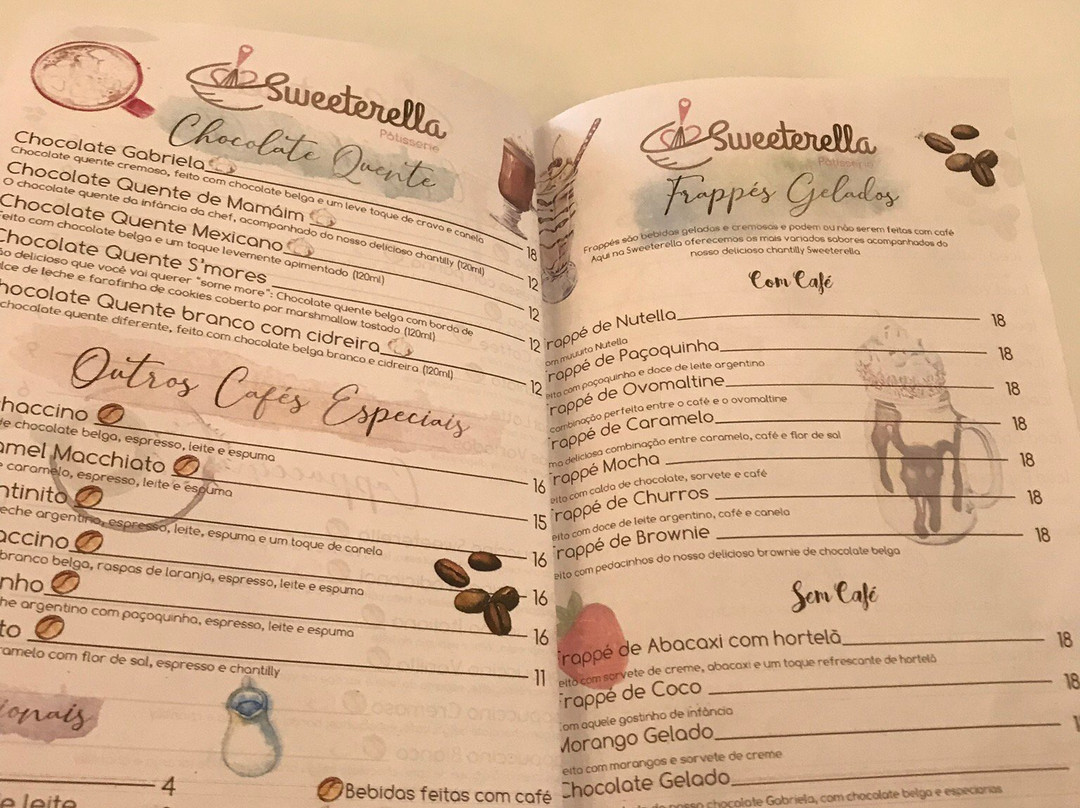 Sweeterella
Pâtisserie
Chocolate Quente
Chocolate Gabriela 18
Chocolate quente cremoso, feito com chocolate belga e um leve toque de cravo e canela
Chocolate Quente de Mamáim 12
O chocolate quente da infância da chef, acompanhado do nosso delicioso chantilly (120ml)
Chocolate Quente Mexicano 12
Feito com chocolate belga e um toque levemente apimentado (120ml)
Chocolate Quente S'mores 12
delicioso que você vai querer "some more": Chocolate quente belga com borda de
doce de leche e farofinha de cookies coberto por marshmallow tostado (120ml)
hocolate Quente branco com cidreira 12
chocolate quente diferente, feito com chocolate belga branco e cidreira (120ml)
Outros Cafés Especiais
haccino 16
de chocolate belga, espresso, leite e espuma
amel Macchiato 15
caramelo, espresso, leite e espuma
ntinito 16
leche argentino, espresso, leite, espuma e um toque de canela
accino 16
branco belga, raspas de laranja, espresso, leite e espuma
nho 16
che argentino com paçoquinha, espresso, leite e espuma
to 11
ramelo com flor de sal, espresso e chantilly
ionais
4
e leite
Bebidas feitas com café
Sweeterella
Pâtisserie
Frappés Gelados
Frappés são bebidas geladas e cremosas e podem ou não serem feitas com café
Aqui na Sweeterella oferecemos os mais variados sabores acompanhados do
nosso delicioso chantilly Sweeterella
Com Café
rappé de Nutella 18
om muuuita Nutella
rappé de Paçoquinha 18
eito com paçoquinha e doce de leite argentino
rappé de Ovomaltine 18
combinação perfeita entre o café e o ovomaltine
rappé de Caramelo 18
ma deliciosa combinação entre caramelo, café e flor de sal
rappé Mocha 18
eito com calda de chocolate, sorvete e café
rappé de Churros 18
eito com doce de leite argentino, café e canela
rappé de Brownie 18
eito com pedacinhos do nosso delicioso brownie de chocolate belga
Sem Café
rappé de Abacaxi com hortelã 18
eito com sorvete de creme, abacaxi e um toque refrescante de hortelã
Frappé de Coco 18
om aquele gostinho de infância
Morango Gelado
eito com morangos e sorvete de creme
Chocolate Gelado
nosso chocolate Gabriela, com chocolate belga e especiarias